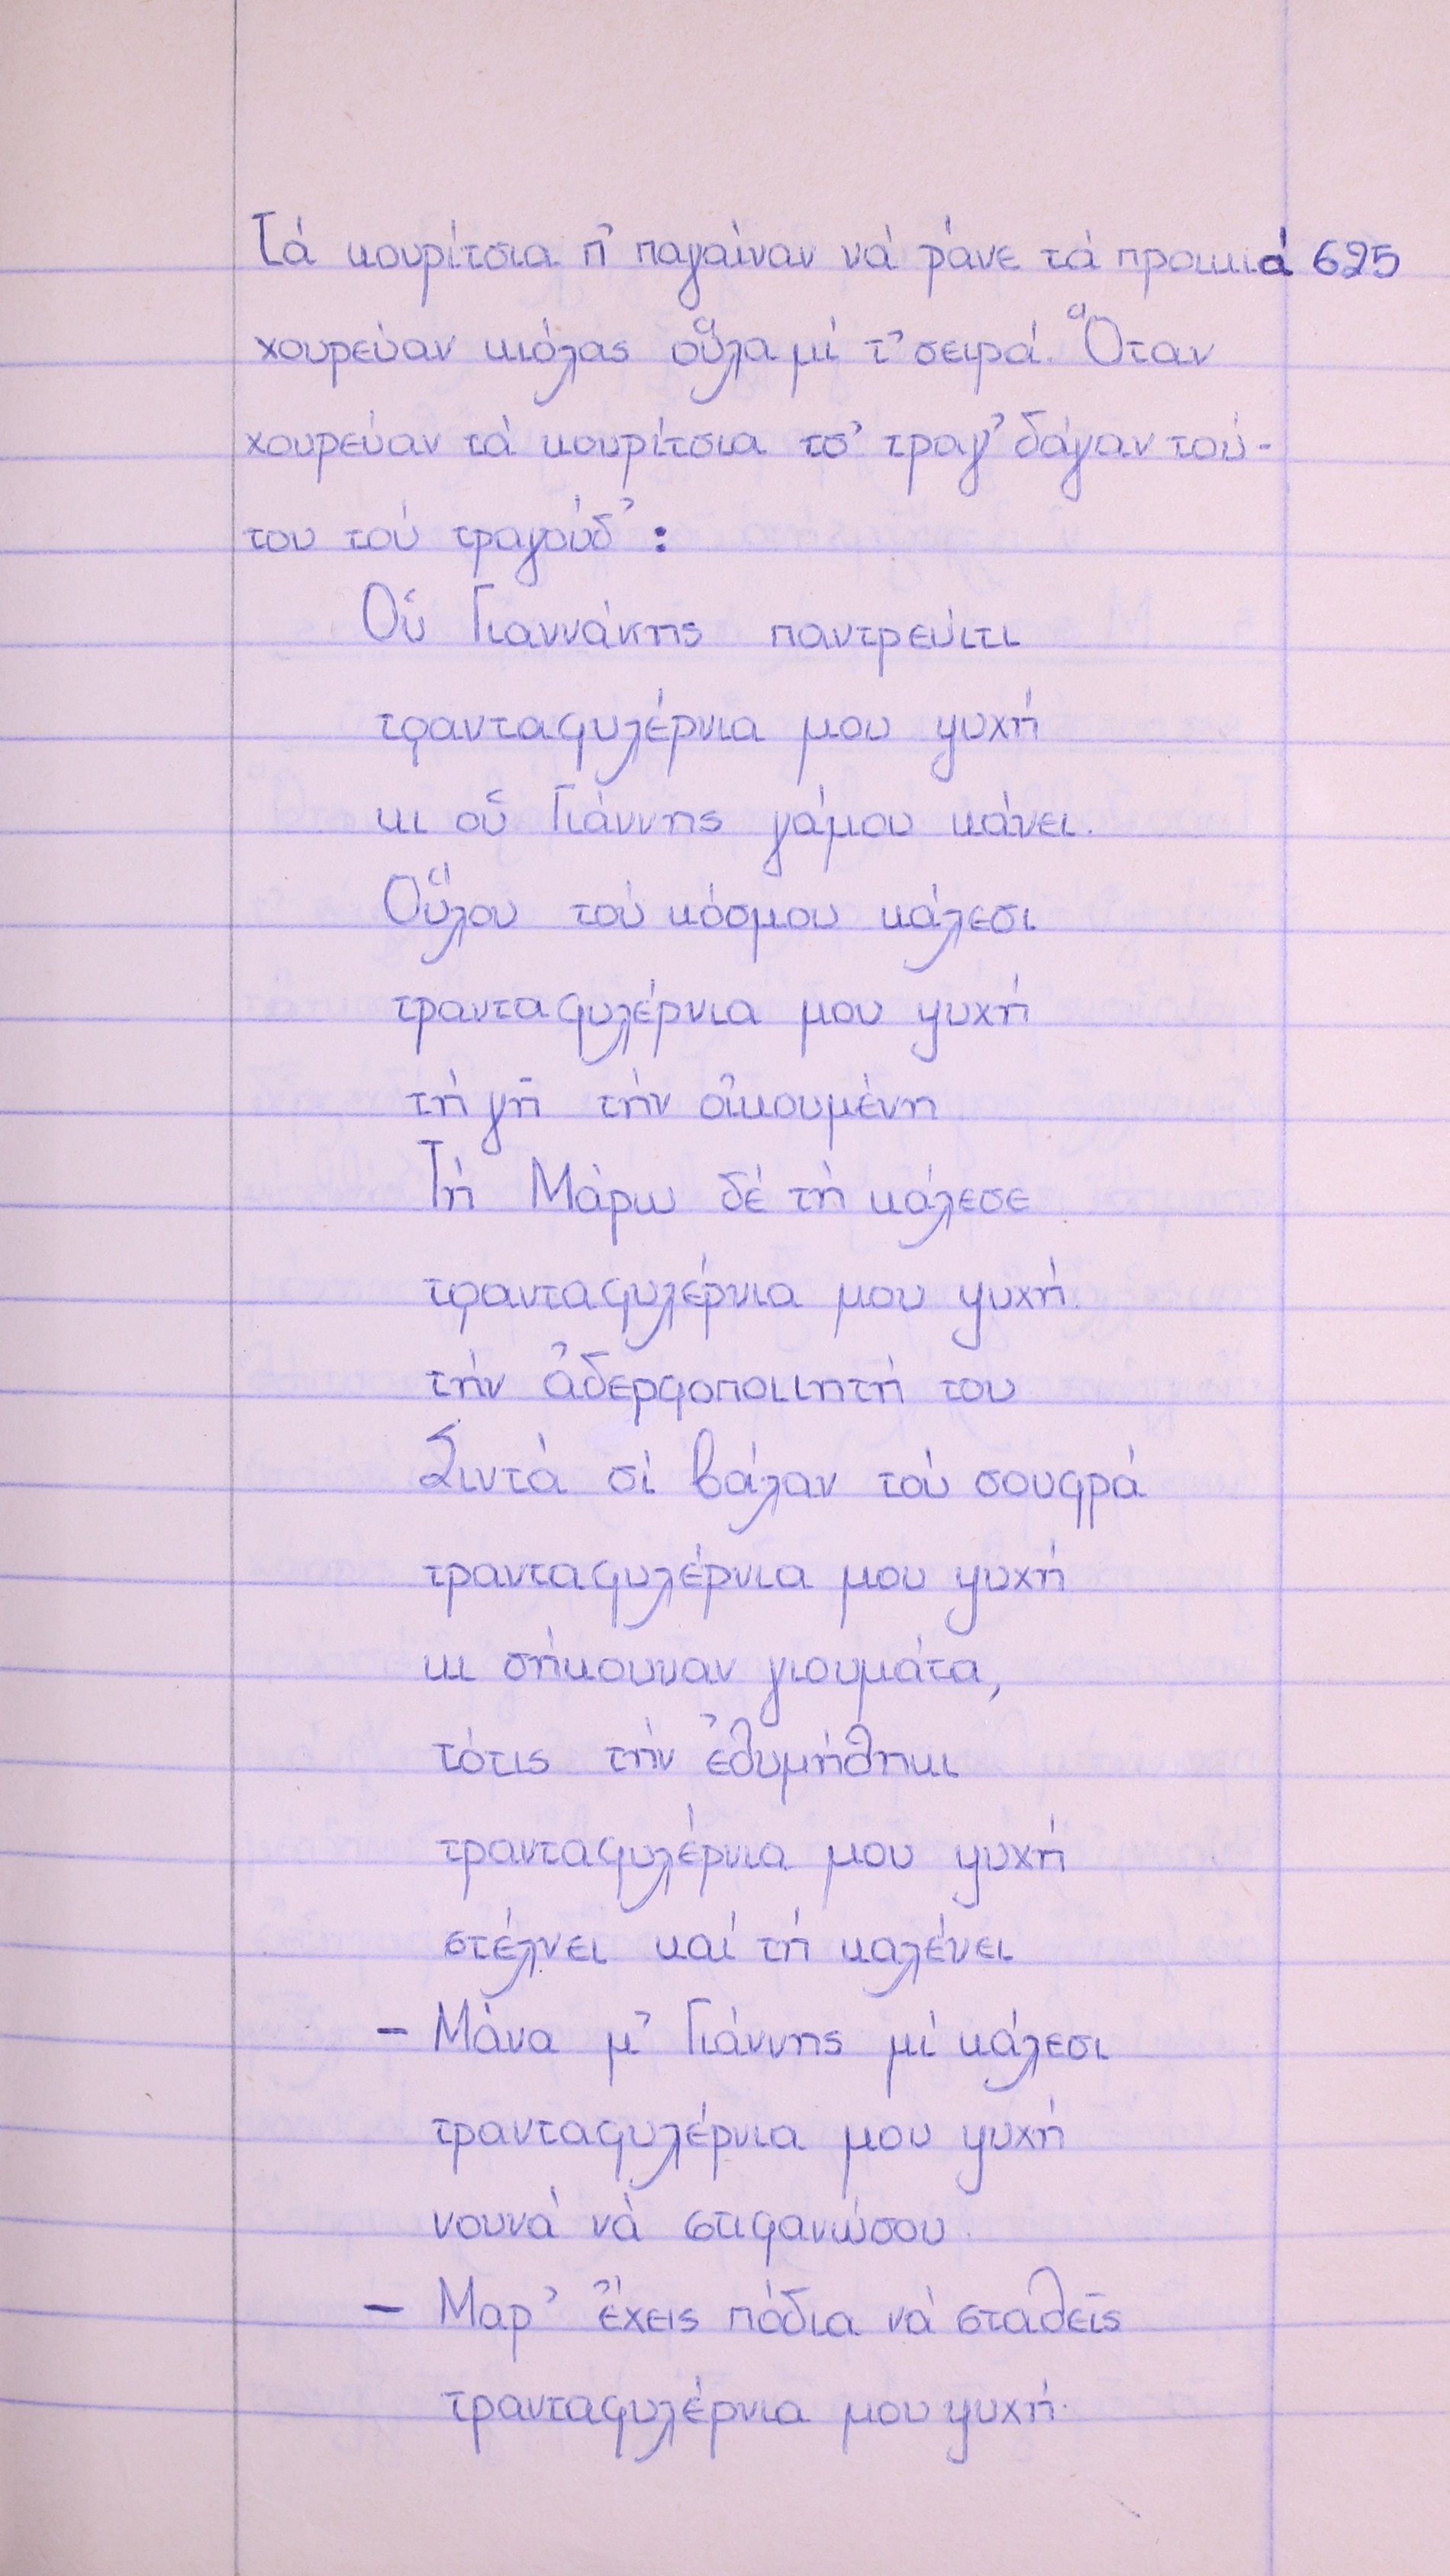 Τά κουρίτσια π' παγαίναν νά ράνε τά προικιά 625
χουρεύαν κιόλας οὕλα μί τ' σειρά. Ὅταν
χουρεύαν τά κουρίτσια τσ' τραγ' δάγαν τού-
του τού τραγούδ':
Οὑ Γιαννάκης παντρεύιτι
τρανταφυλέρνια μου ψυχή
κι οὑ Γιάννης γάμου κάνει.
Οὕλου τού κόσμου κάλεσι
τρανταφυλέρνια μου ψυχή
τή γῆ τήν οἰκουμένη
Τή Μάρω δέ τή κάλεσε
τρανταφυλέρνια μου ψυχή.
τήν ἀδερφοποιιητή του
Σιντά σί βάλαν τού σουφρά
τρανταφυλέρνια μου ψυχή
κι σήκουναν γιουμάτα,
τότις τήν ἐθυμήθηκι
τρανταφυλέρνια μου ψυχή
στέλνει καί τή καλένει
- Μάνα μ' Γιάννης μί κάλεσι
τρανταφυλέρνια μου ψυχή
νουνά νά στιφανώσου.
- Μαρ' ἔχεις πόδια νά σταθεῖς
τρανταφυλέρνια μου ψυχή.